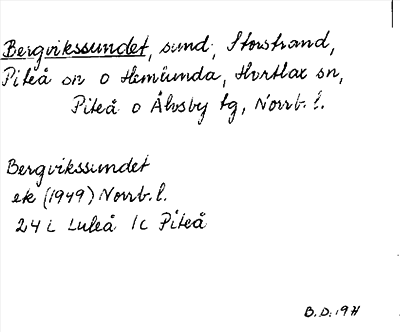 Bergvikssundet, sund, Storstrand,
Piteå sn o Hemlunda, Hortlax sn,
Piteå o Älvsby tg, Norrb. l.
Bergvikssundet
ek (1949) Norrb. l.
24 L Luleå 1c Piteå
B.D. 1971